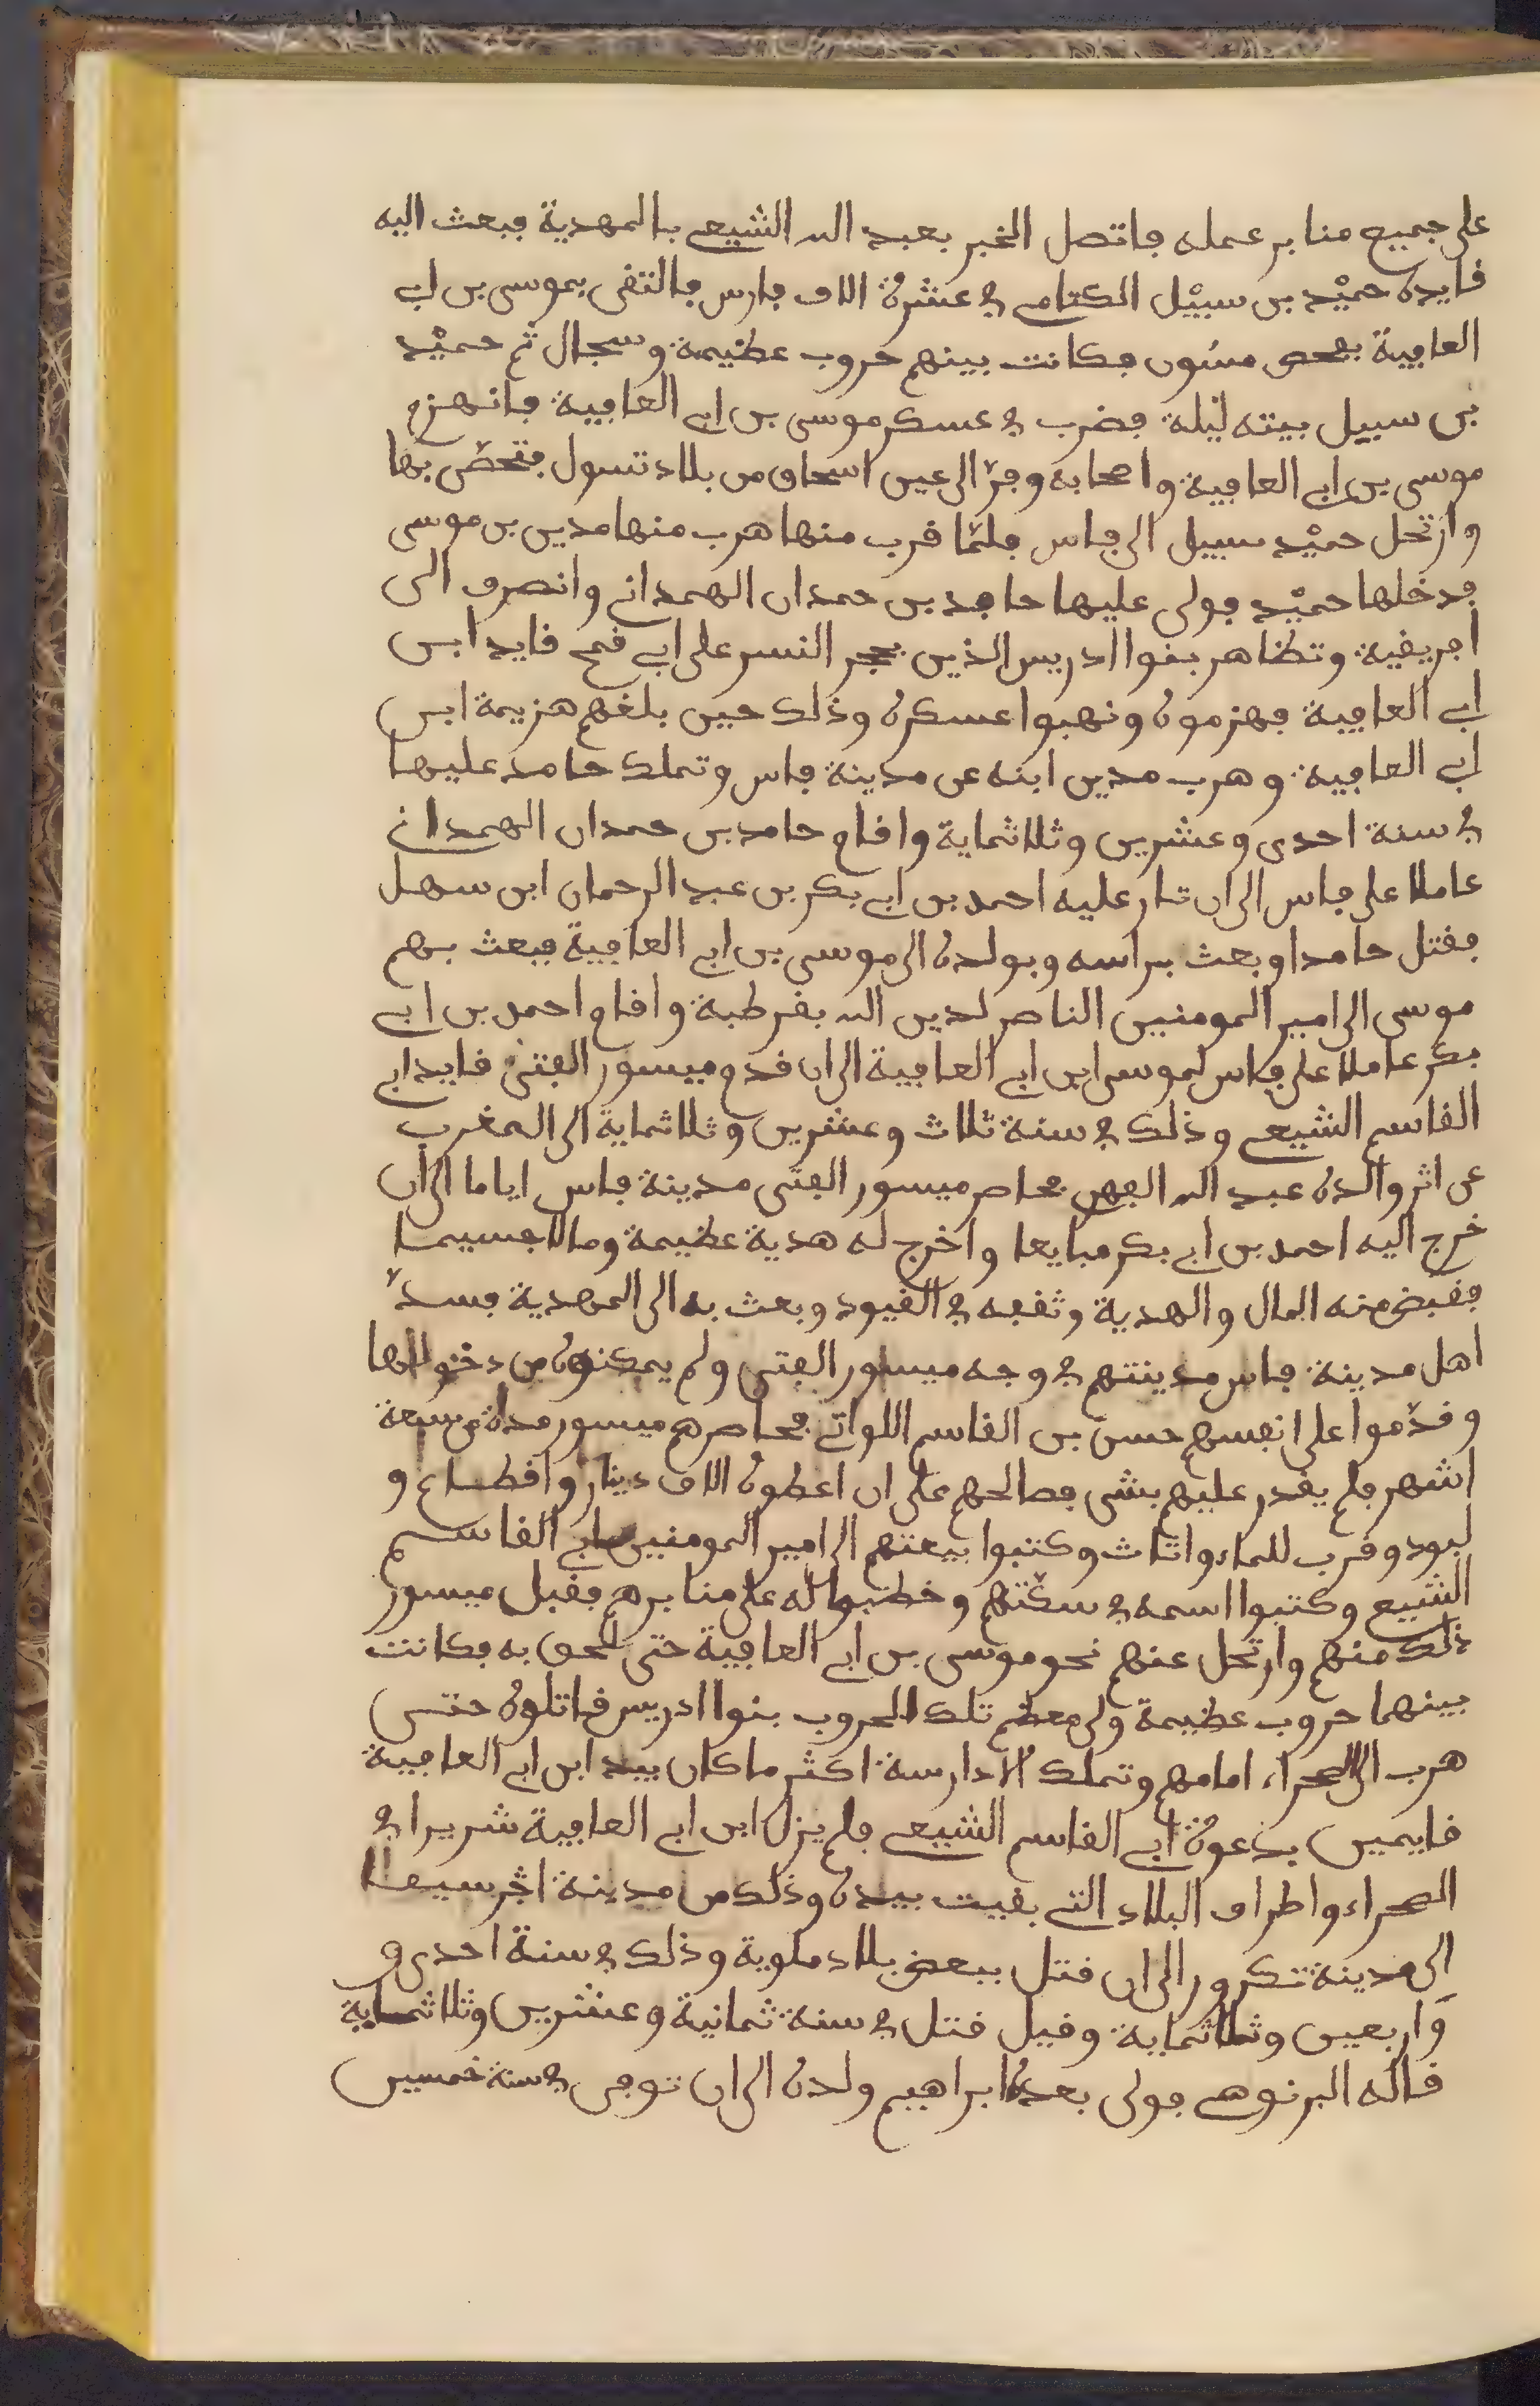 على جميع منابر عمله فاتصل الخبر بعبد الله الشيعي بالمهدية فبعث اليه
قايده حميْد بن سبيْل الكتامي في عشرة الاف فارس فالتقى بموسى بن ابي
العافية بفحص مسُون فكانت بينهم حروب عظيمة وسجال ثم حميْد
بن سبيل بيته ليْلة فضرب في عسكر موسى بن ابي العافية فانهزم
موسى بن ابي العافية واصحابه وفرّ الى عين اسحاق من بلاد تسول فتحصّن بها
وارتحل حميْد سبيل الى فاس فلمّا قرب منها هرب منها مدين بن موسى
فدخلها حميْد فولى عليها حامد بن حمدان الهمداني وانصرف الى
افريقية وتظاهر بنوا ادريس الذين بحجر النسر على ابي قمح قايد ابن
ابي العافية فهزموه ونهبوا عسكره وذلك حين بلغهم هزيمة ابن
ابي العافية وهرب مدين ابنه عن مدينة فاس وتملك حامد عليها
في سنة احدى وعشرين وثلاثماية واقام حامد بن حمدان الهمداني
عاملا على فاس الى ان ثار عليه احمد بن ابي بكر بن عبد الرحمان ابن سهل
فقتل حامدا وبعث براسه وبولده الى موسى بن ابي العافية فبعث بهم
موسى الى امير المومنين الناصر لدين الله بقرطبة واقام احمد بن ابي
بكر عاملا على فاس لموسى ابن ابي العافية الى ان قدم ميسور الفتى قايد ابي
القاسم الشيعي وذلك في سنة ثلاث وعشرين وثلاثماية الى المغرب
عن اثر والده عبد الله المهدي فحاصر ميسور الفتى مدينة فاس اياما الى ان
خرج اليه احمد بن ابي بكر مبايعا واخرج له هدية عظيمة ومالا جسيما
فقبض منه المال والهدية وثقفه في القيود وبعث به الى المهدية فسدّ
اهل مدينة فاس مدينتهم في وجه ميسور الفتى ولم يمكنوه من دخولها
وقدّموا على انفسهم حسن بن القاسم اللواتي فحاصرهم ميسور مدة من سبعة
اشهر فلم يقدر عليهم بشى فصالحهم على ان اعطوه الاف دينار واقطاع و
لبود وقرب للماء واثاث وكتبوا بيعتهم الى امير المومنين ابي القاسم
الشيعي وكتبوا اسمه في سكّتهم وخطبوا له على منابرهم فقبل ميسور
ذلك منهم وارتحل عنهم نحو موسى بن ابي العافية حتى لحق به فكانت
بينهما حروب عظيمة ولى معظم تلك الحروب بنوا ادريس قاتلوه حتى
هرب الى الصحراء امامهم وتملك الادارسة اكثر ما كان بيد ابن ابي العافية
قايمين بدعوة ابي القاسم الشيعي فلم يزل ابن ابي العافية شريرا في
الصحراء واطراف البلاد التي بقيت بيده وذلك من مدينة اجرسيف
الى مدينة تكرور الى ان قتل ببعض بلاد ملوية وذلك في سنة احدى و
واربعين وثلاثماية وقيل قتل في سنة ثمانية وعشرين وثلاثماية
قاله البرنوصي فولى بعده ابراهيم ولده الى ان توفى في سنة خمسين